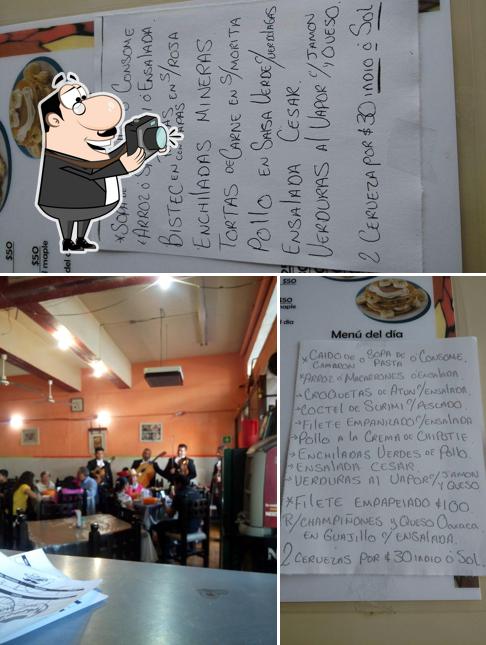 *SOPA
CONSOME
*ARROZ ó
ó ENSALADA.
BISTEC EN
PAPAS EN S/ROJA
ENCHILADAS MINERAS
TORTAS DE CARNE EN S/MORITA
POLLO EN SALSA VERDE/VERDOLAGAS
ENSALADA CESAR.
VERDURAS AL VAPOR C/JAMON Y QUESO.
2 CERVEZA POR $30 INDIO ó SOL
$50
$50
maple
del
$50
maple
l día
Menú del día
*CALDO DE CAMARON o SOPA DE PASTA ó CONSOME.
*ARROZ ó MACARRONES ó ENSALADA
→CROQUETAS DE ATUN C/ENSALADA.
→COCTEL DE SURIMI C/PESCADO.
→FILETE EMPANIZADO C/ENSALADA
→POLLO A LA CREMA DE CHIPOTLE
→ENCHILADAS VERDES DE POLLO.
→ENSALADA CESAR.
→VERDURAS AL VAPOR C/JAMON Y QUESO
*FILETE EMPAPELADO $100
R/CHAMPIÑONES Y QUESO OAXACA
EN GUAJILLO C/ENSALADA.
2 CERVEZAS POR $30 INDIO ó SOL